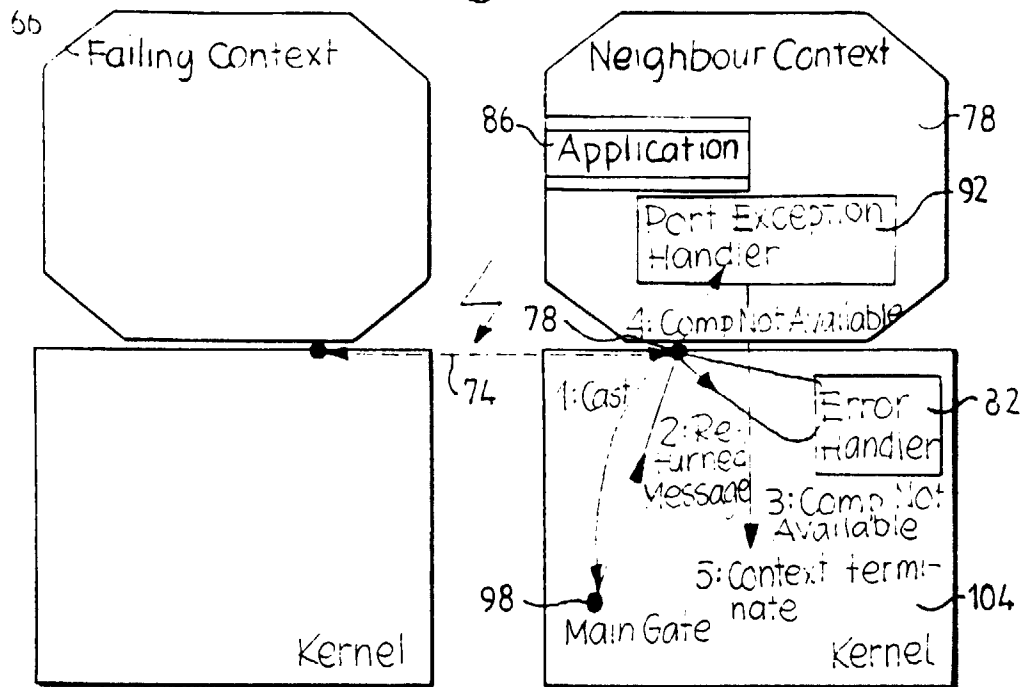 66
Failing Context
Neighbour Context
86
Application
78
92
Port Exception
Handler
78
4: Comp Not Available
74
1: Cast
2: Re-
turned
Message
Error
Handler
82
3: Comp Not
Available
5: Context termi-
nate
98
Main Gate
104
Kernel
Kernel